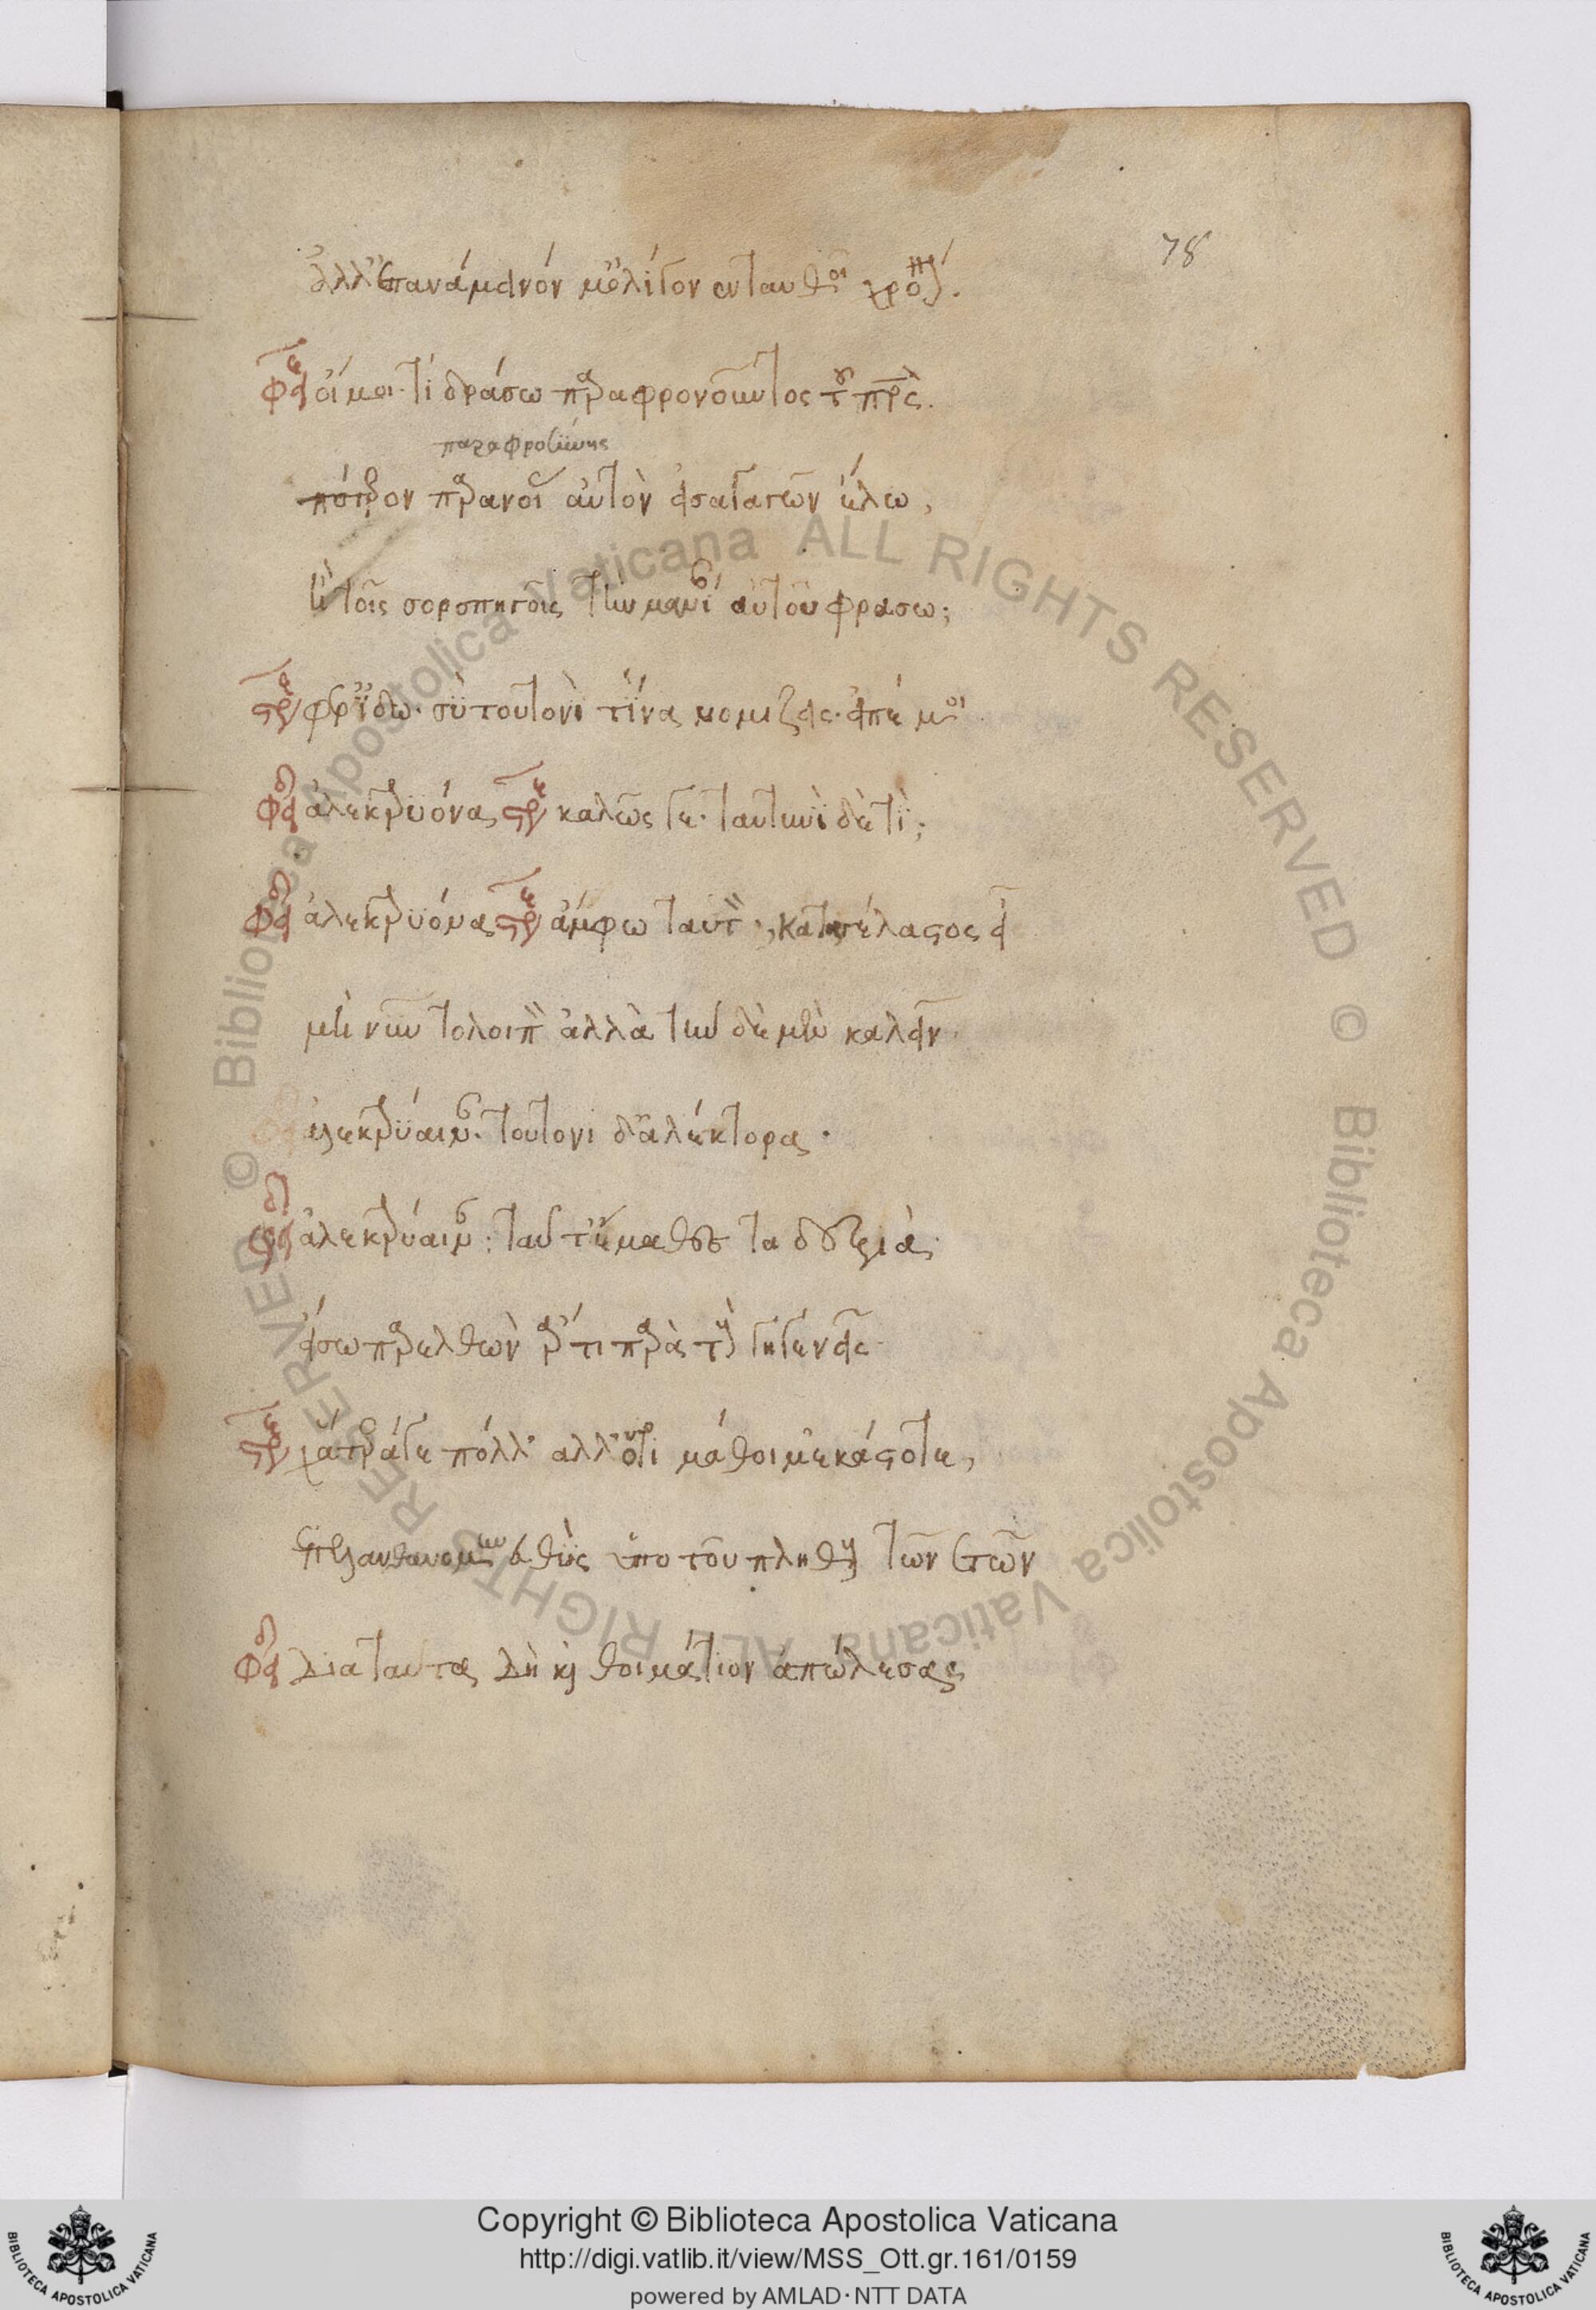 78
ἀλλ' ἐπανάμεινόν μ' ὀλίγον ἐνταυθοῖ χρόνον.
Φει οἴμοι· τί δράσω παραφρονοῦντος τοῦ πατρός.
παραφροσύνης
πότερον παρανοίας αὐτὸν εἰσαγαγὼν ἕλω,
ἢ τοῖς σοροπηγοῖς τὴν μανίαν αὐτοῦ φράσω;
Στρε φέρ' ἴδω· σὺ τουτονὶ τίνα νομίζεις· εἰπέ μοι
Φειδ ἀλεκτρυόνα Στρε καλῶς γε· ταυτηνὶ δὲ τί;
Φειδ ἀλεκτρυόνα Στρε ἄμφω ταὐτόν; καταγέλαστος εἶ
μὴ νῦν τολοιπὸν ἀλλὰ τήνδε μὲν καλεῖν
ἀλεκτρύαιναν· τουτονὶ δ' ἀλέκτορα·
Φειδ ἀλεκτρύαιναν; ταῦτ' ἔμαθες τὰ δεξιὰ
εἴσω παρελθὼν ἄρτι παρὰ τοὺς γηγενεῖς
Στρε χἄτερά γε πόλλ' ἀλλ' ὅτι μάθοιμ' ἑκάστοτε,
ἐπελανθανόμην εὐθὺς ὑπὸ τοῦ πλήθους τῶν ἐτῶν
Φειδ διὰ ταῦτα δὴ καὶ θοιμάτιον ἀπώλεσας
Biblioteca Apostolica Vaticana ALL RIGHTS RESERVED © Biblioteca Apostolica Vaticana ALL RIGHTS RESERVED ©
Copyright © Biblioteca Apostolica Vaticana
http://digi.vatlib.it/view/MSS_Ott.gr.161/0159
powered by AMLAD·NTT DATA
BIBLIOTECA APOSTOLICA VATICANA
BIBLIOTECA APOSTOLICA VATICANA